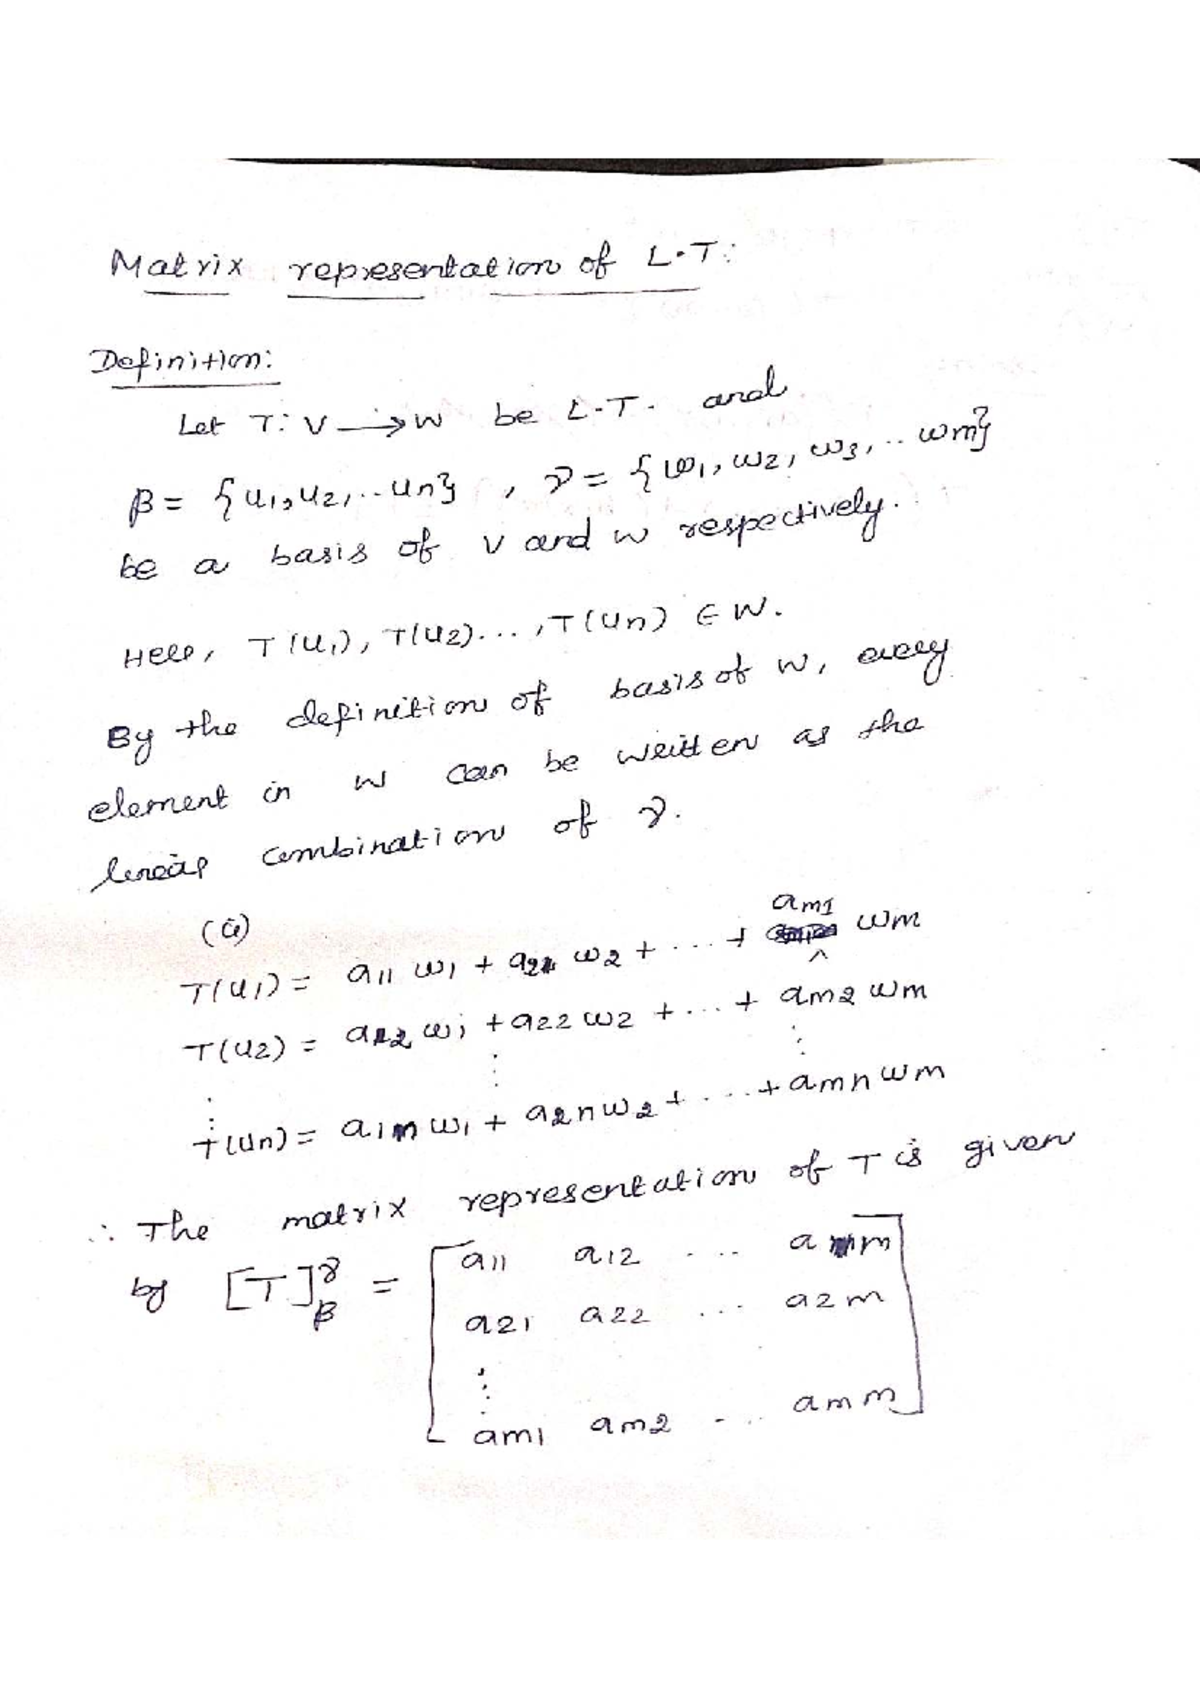 Matrix representation of L.T:
Definition:
Let T: V → W be L.T. and
β = {u1, u2, .. un}, γ = {w1, w2, w3, .. wm}
be a basis of V and W respectively.
Here, T(u1), T(u2)..., T(un) ∈ W.
By the definition of basis of W, every
element in W can be written as the
linear combination of γ.
(i)
T(u1) = a11 w1 + a21 w2 + ... + am1 wm
T(u2) = a12 w1 + a22 w2 + ... + am2 wm
⋮ ⋮ ⋮
T(un) = a1n w1 + a2n w2 + ... + amn wm
∴ The matrix representation of T is given
by [T]γβ = [a11 a12 ... a1m
a21 a22 ... a2m
⋮
am1 am2 ... amm]